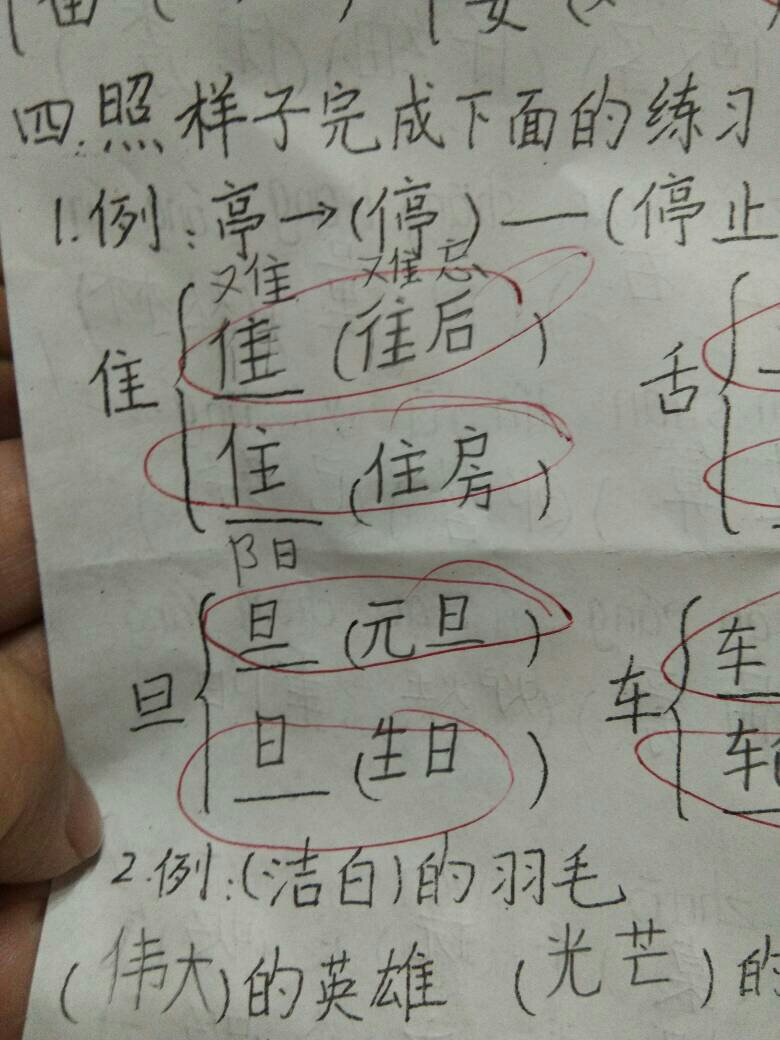 四.照样子完成下面的练习
1.例:亭→(停)—(停止
难 难忘
隹 隹 (往后)
住 (住房)
舌
阝日
旦 旦 (元旦)
日 (生日)
车 车
车
2.例:(洁白)的羽毛
(伟大)的英雄 (光芒)的